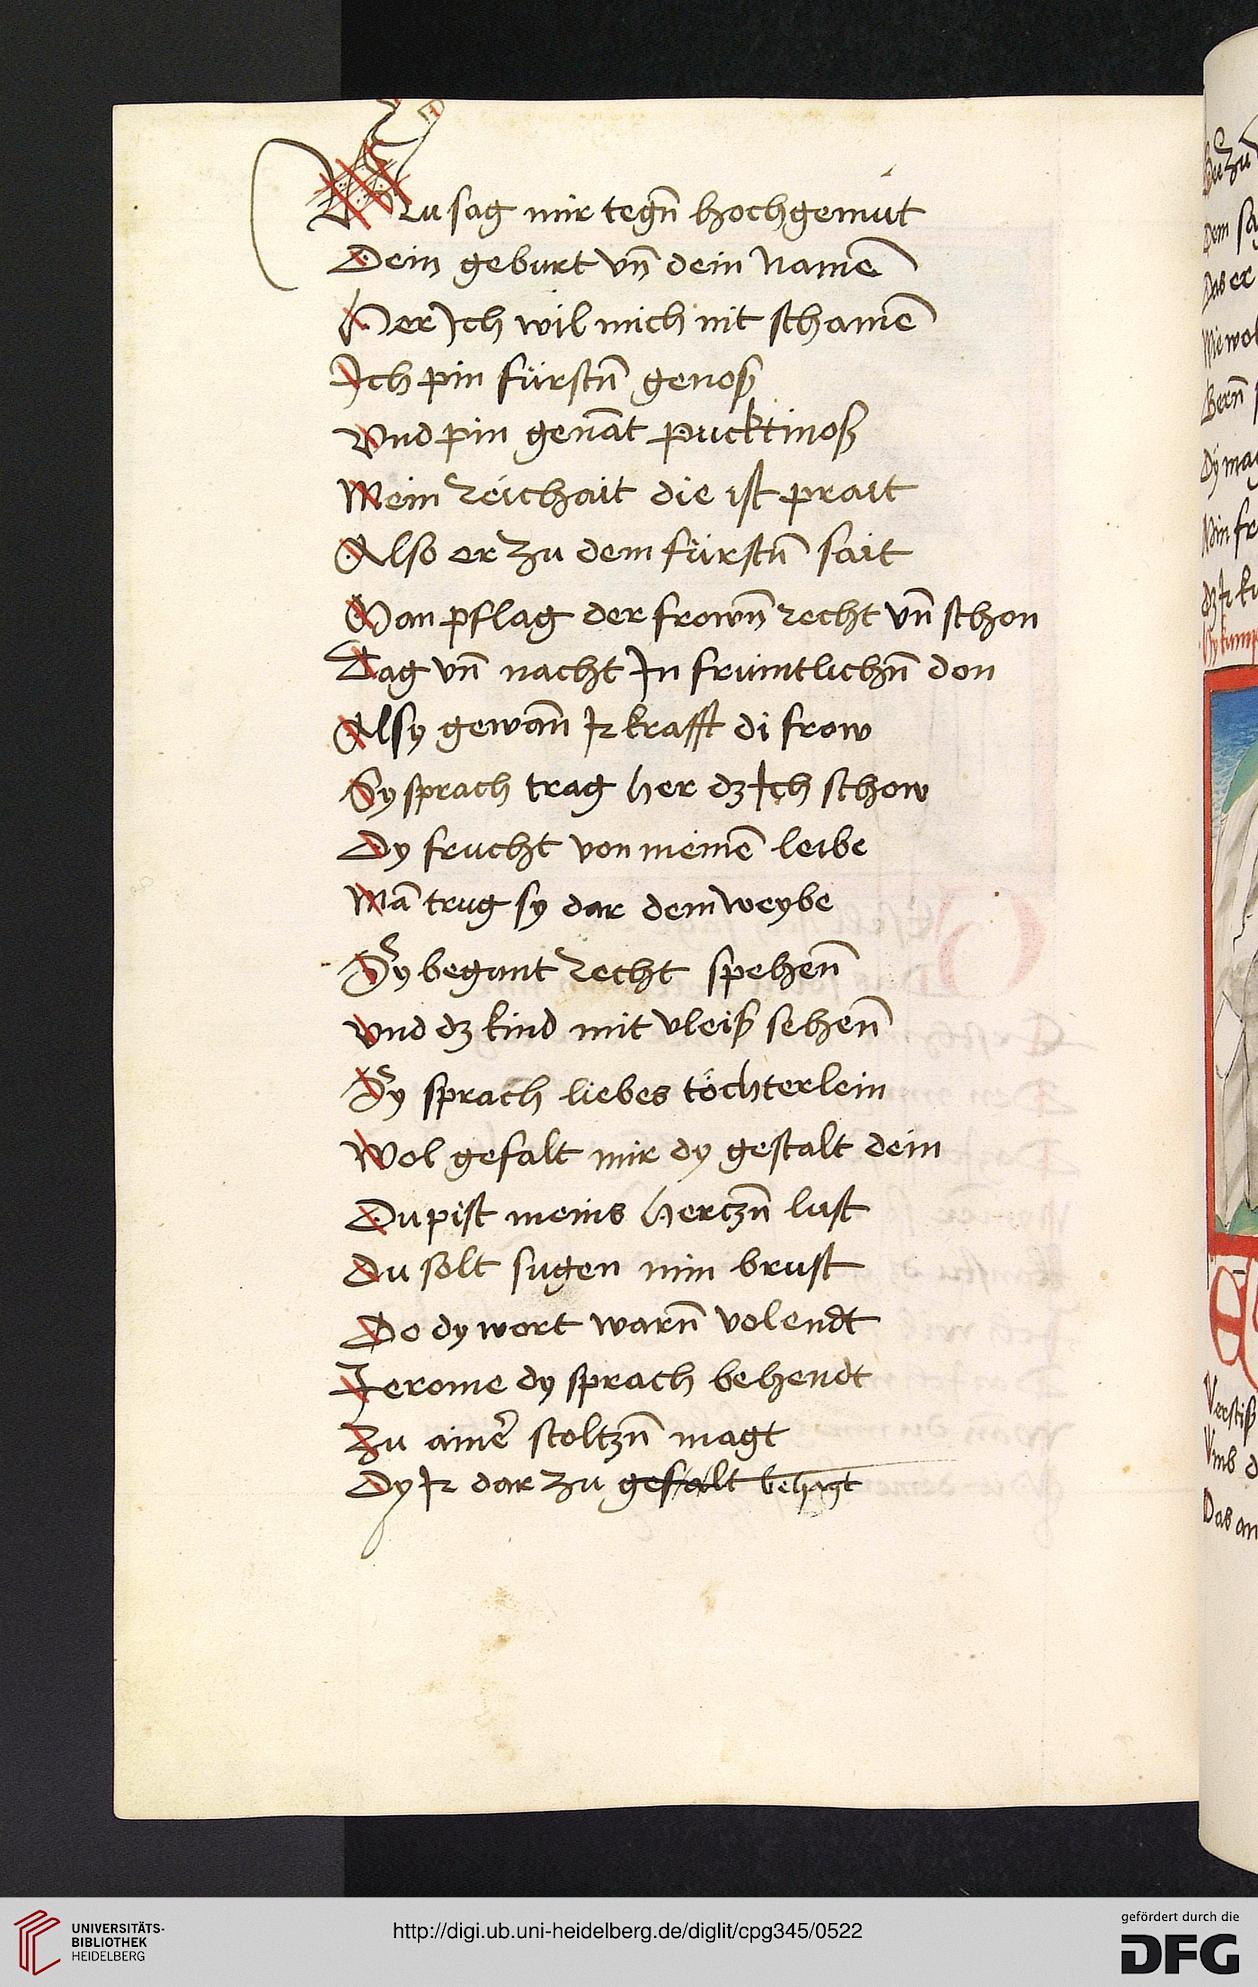 Nu sag mir tegn̄ hochgemut
Dein geburt vn̄ dein namē
Her Ich wil mich nit schamē
Ich pin fürstn̄ genoß
Vnd pin genāt pucktinoß
Mein reichait die ist prait
Also er zu dem fürstn̄ sait
Man pflag der frown̄ recht vn̄ schon
Tag vn̄ nacht In fruntlichn̄ don
Alsy gewan̄ Ir krafft di frow
Sy sprach trag her dz Ich schow
Dy frucht von meinē leibe
Mā trug sy dar dem weybe
Sy begunt recht spehen̄
Vnd dz kind mit vleiß sehen̄
Sy sprach liebes töchterlein
Wol gefalt mir dy gestalt dein
Du pist meins hertzn̄ lust
Du solt sugen min brust
Do dy wort warn̄ volendt
Jerome dy sprach behendt
Zu ainer stoltzn̄ magt
Dy Ir dar zu gefalt behagt
Dem
Das er
Wie wol
Bern̄
Dy mag
Min fr
dz Ir
Sy kump
Vmb d
Das an
UNIVERSITÄTS-
BIBLIOTHEK
HEIDELBERG
http://digi.ub.uni-heidelberg.de/diglit/cpg345/0522
gefördert durch die
DFG